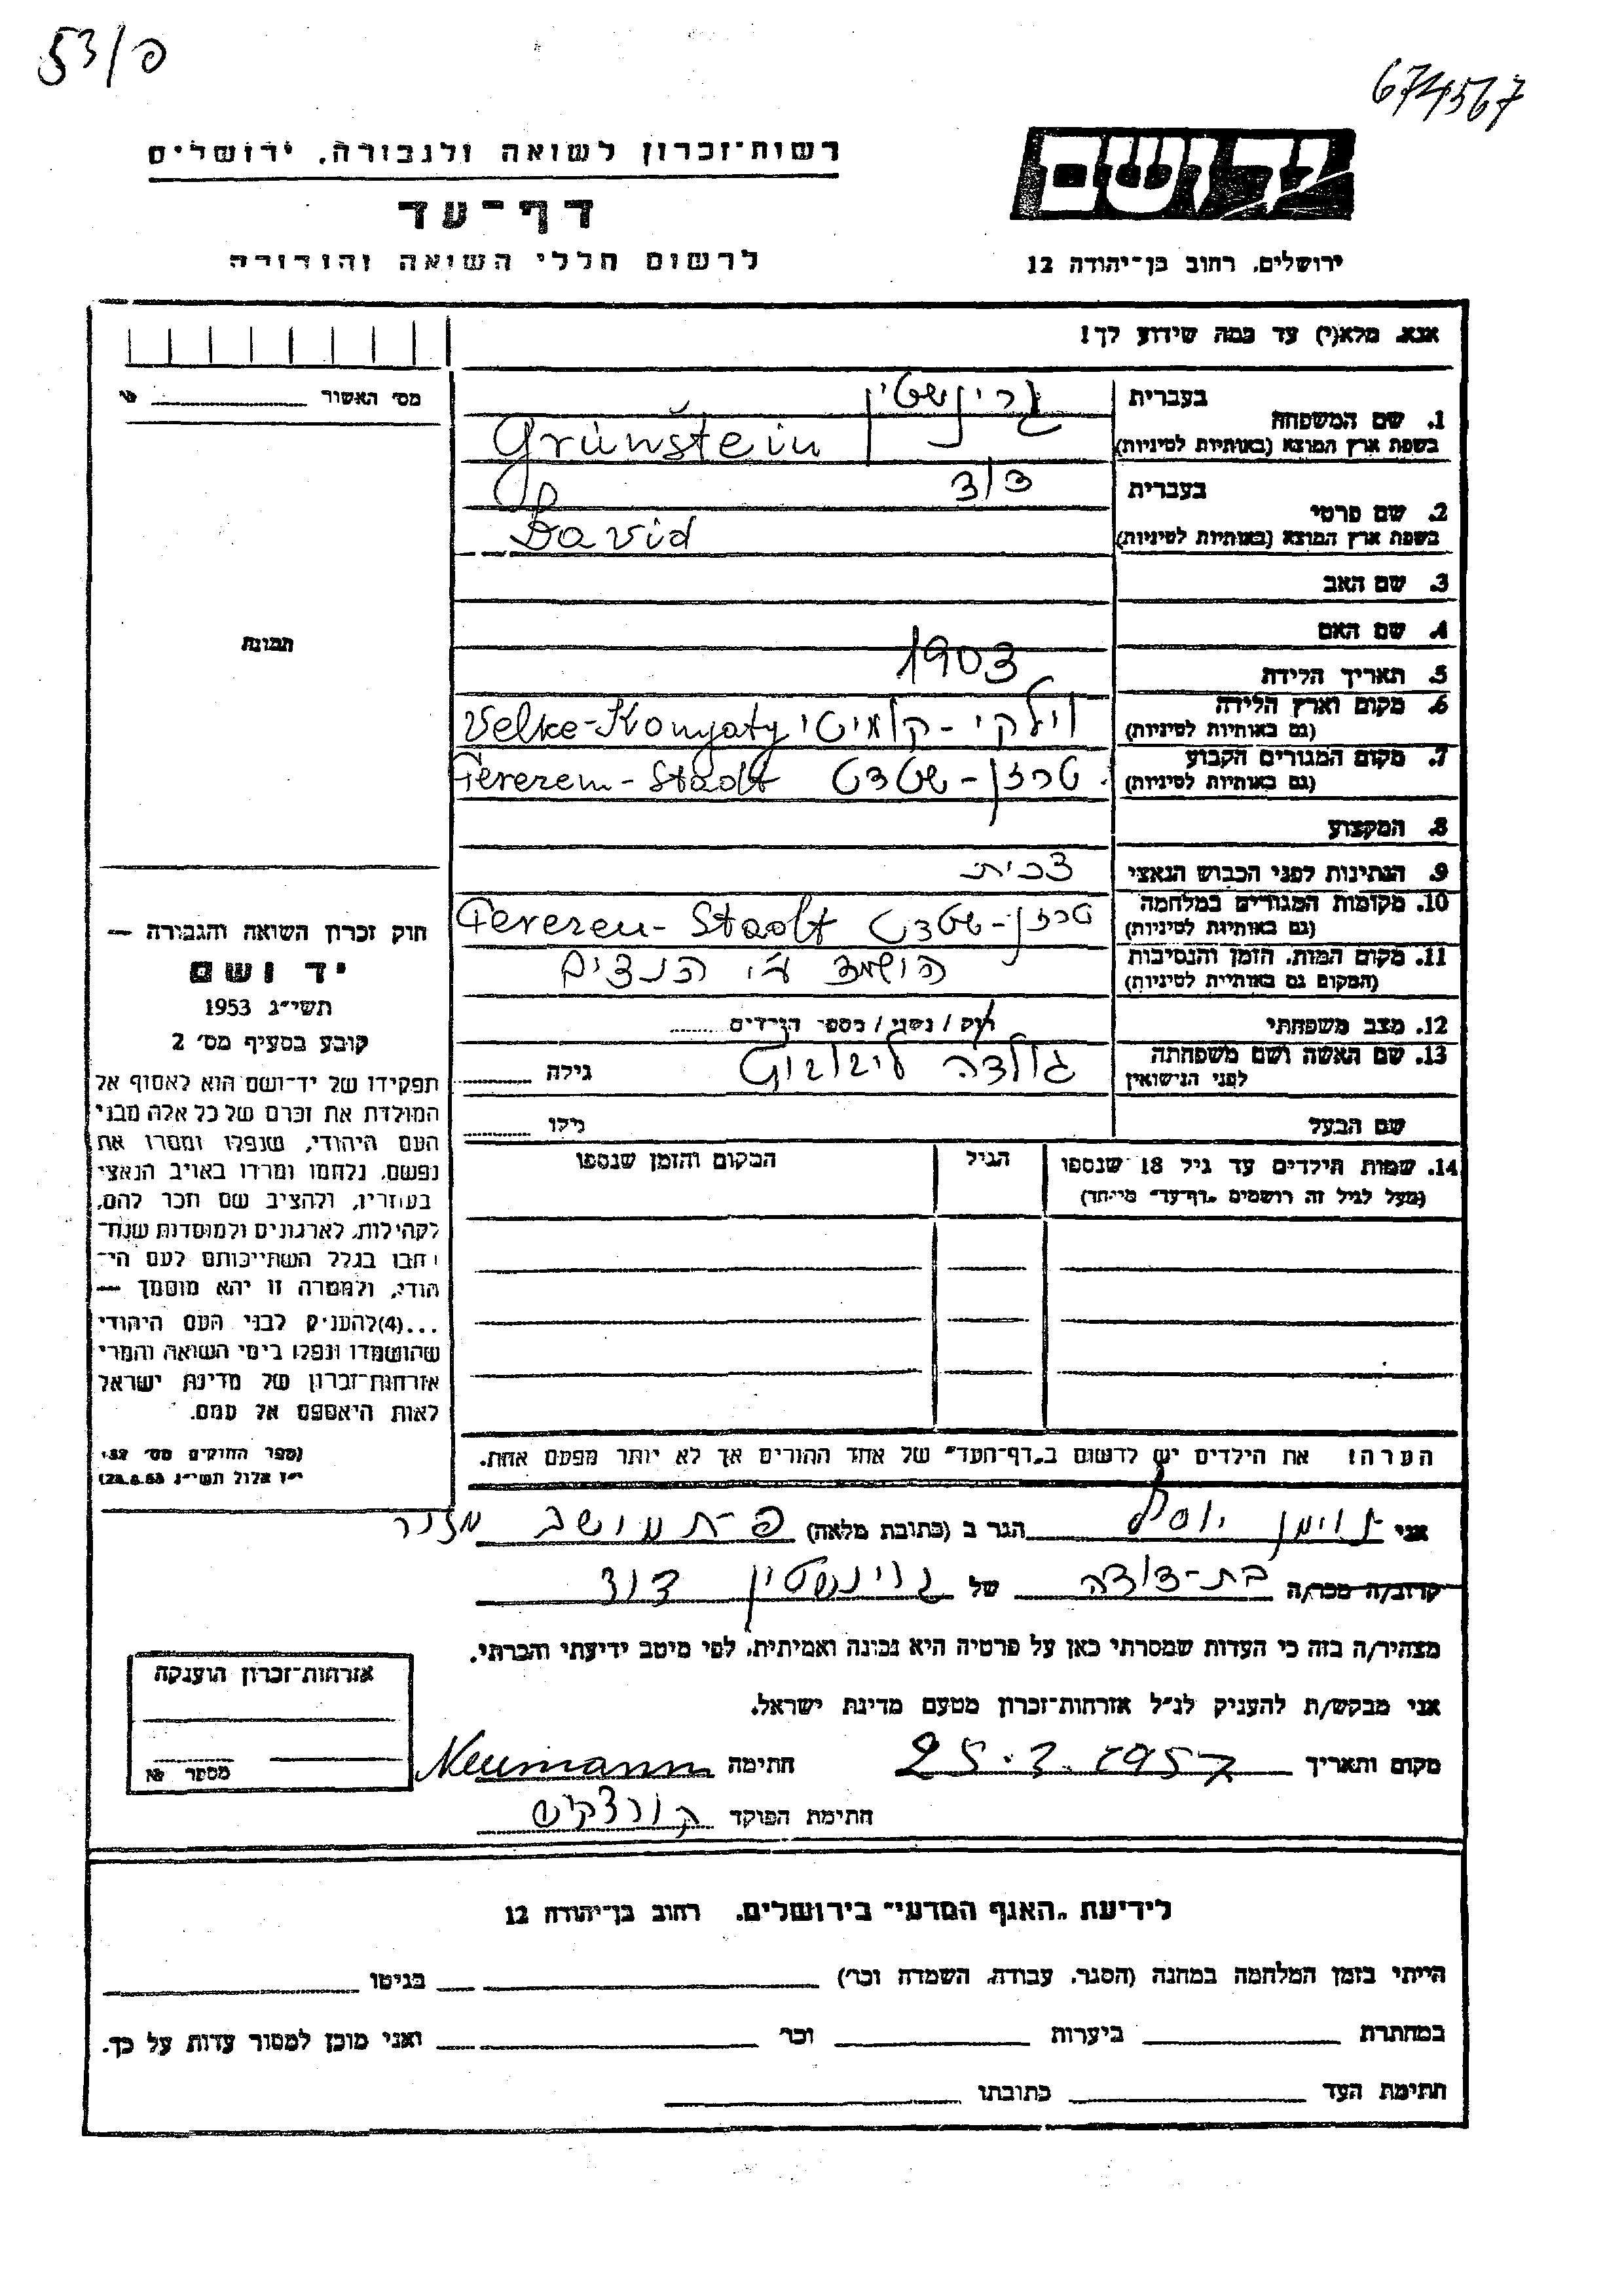 53/פ
674567
רשות־זכרון לשואה ולגבורה, ירושלים
דף־עד
לרשום חללי השואה והגבורה
יד ושם
ירושלים, רחוב בן־יהודה 12
אנא, מלא(י) עד כמה שידוע לך!
מס׳ האשור №
1. שם המשפחה בעברית גרינשטין
בשפת ארץ המוצא (באותיות לטיניות) Grünštein
2. שם פרטי בעברית דוד
בשפת ארץ המוצא (באותיות לטיניות) David
3. שם האב
4. שם האם
5. תאריך הלידה 1903
6. מקום וארץ הלידה (גם באותיות לטיניות) Velke-Komyaty
7. מקום המגורים הקבוע (גם באותיות לטיניות) טרזן-שטדט Terezen-Stadt
8. המקצוע
9. הנתינות לפני הכבוש הנאצי צכית
10. מקומות המגורים במלחמה (גם באותיות לטיניות) טרזן-שטדט Terezen-Stadt
11. מקום המות, הזמן והנסיבות (המקום גם באותיות לטיניות) הושמד ע״י הנצים
12. מצב משפחתי רוק / נשוי / מספר הילדים
13. שם האשה ושם משפחתה לפני הנישואין גולדה גילה
שם הבעל גילו
14. שמות הילדים עד גיל 18 שנספו הגיל המקום והזמן שנספו
(מעל לגיל זה רושמים "דף־עד" מיוחד)
הערה: את הילדים יש לרשום ב"דף־העד" של אחד ההורים אך לא יותר מפעם אחת.
תמונה
חוק זכרון השואה והגבורה —
יד ושם
תשי״ג 1953
קובע בסעיף מס׳ 2
תפקידו של יד־ושם הוא לאסוף אל
המולדת את זכרם של כל אלה מבני
העם היהודי, שנפלו ומסרו את
נפשם, נלחמו ומרדו באויב הנאצי
בעוזריו, ולהציב שם וזכר להם,
לקהילות, לארגונים ולמוסדות שנח־
רבו בגלל השתייכותם לעם הי־
הודי, ולמטרה זו יהא מוסמך —
...(4) להעניק לבני העם היהודי
שהושמדו ונפלו בימי השואה והמרי
אזרחות־זכרון של מדינת ישראל
לאות היאספם אל עמם.
(ספר החוקים מס׳ 132,
י״ז אלול תשי״ג 28.8.53)
אני נוימן יוסף הגר ב (כתובת מלאה) פ״ת מושב מזור
קרוב/ה מכר/ה בת-דודה של גרינשטין דוד
מצהיר/ה בזה כי העדות שמסרתי כאן על פרטיה היא נכונה ואמיתית, לפי מיטב ידיעתי והכרתי.
אני מבקש/ת להעניק לנ״ל אזרחות־זכרון מטעם מדינת ישראל.
מקום ותאריך 25.3.1957 חתימה Neumann
חתימת הפוקד
אזרחות־זכרון הוענקה
מספר №
לידיעת "האגף המדעי" בירושלים, רחוב בן־יהודה 12
הייתי בזמן המלחמה במחנה (הסגר, עבודה, השמדה וכו׳) בגיטו
במחתרת ביערות וכו׳ ואני מוכן למסור עדות על כך.
חתימת העד כתובתו